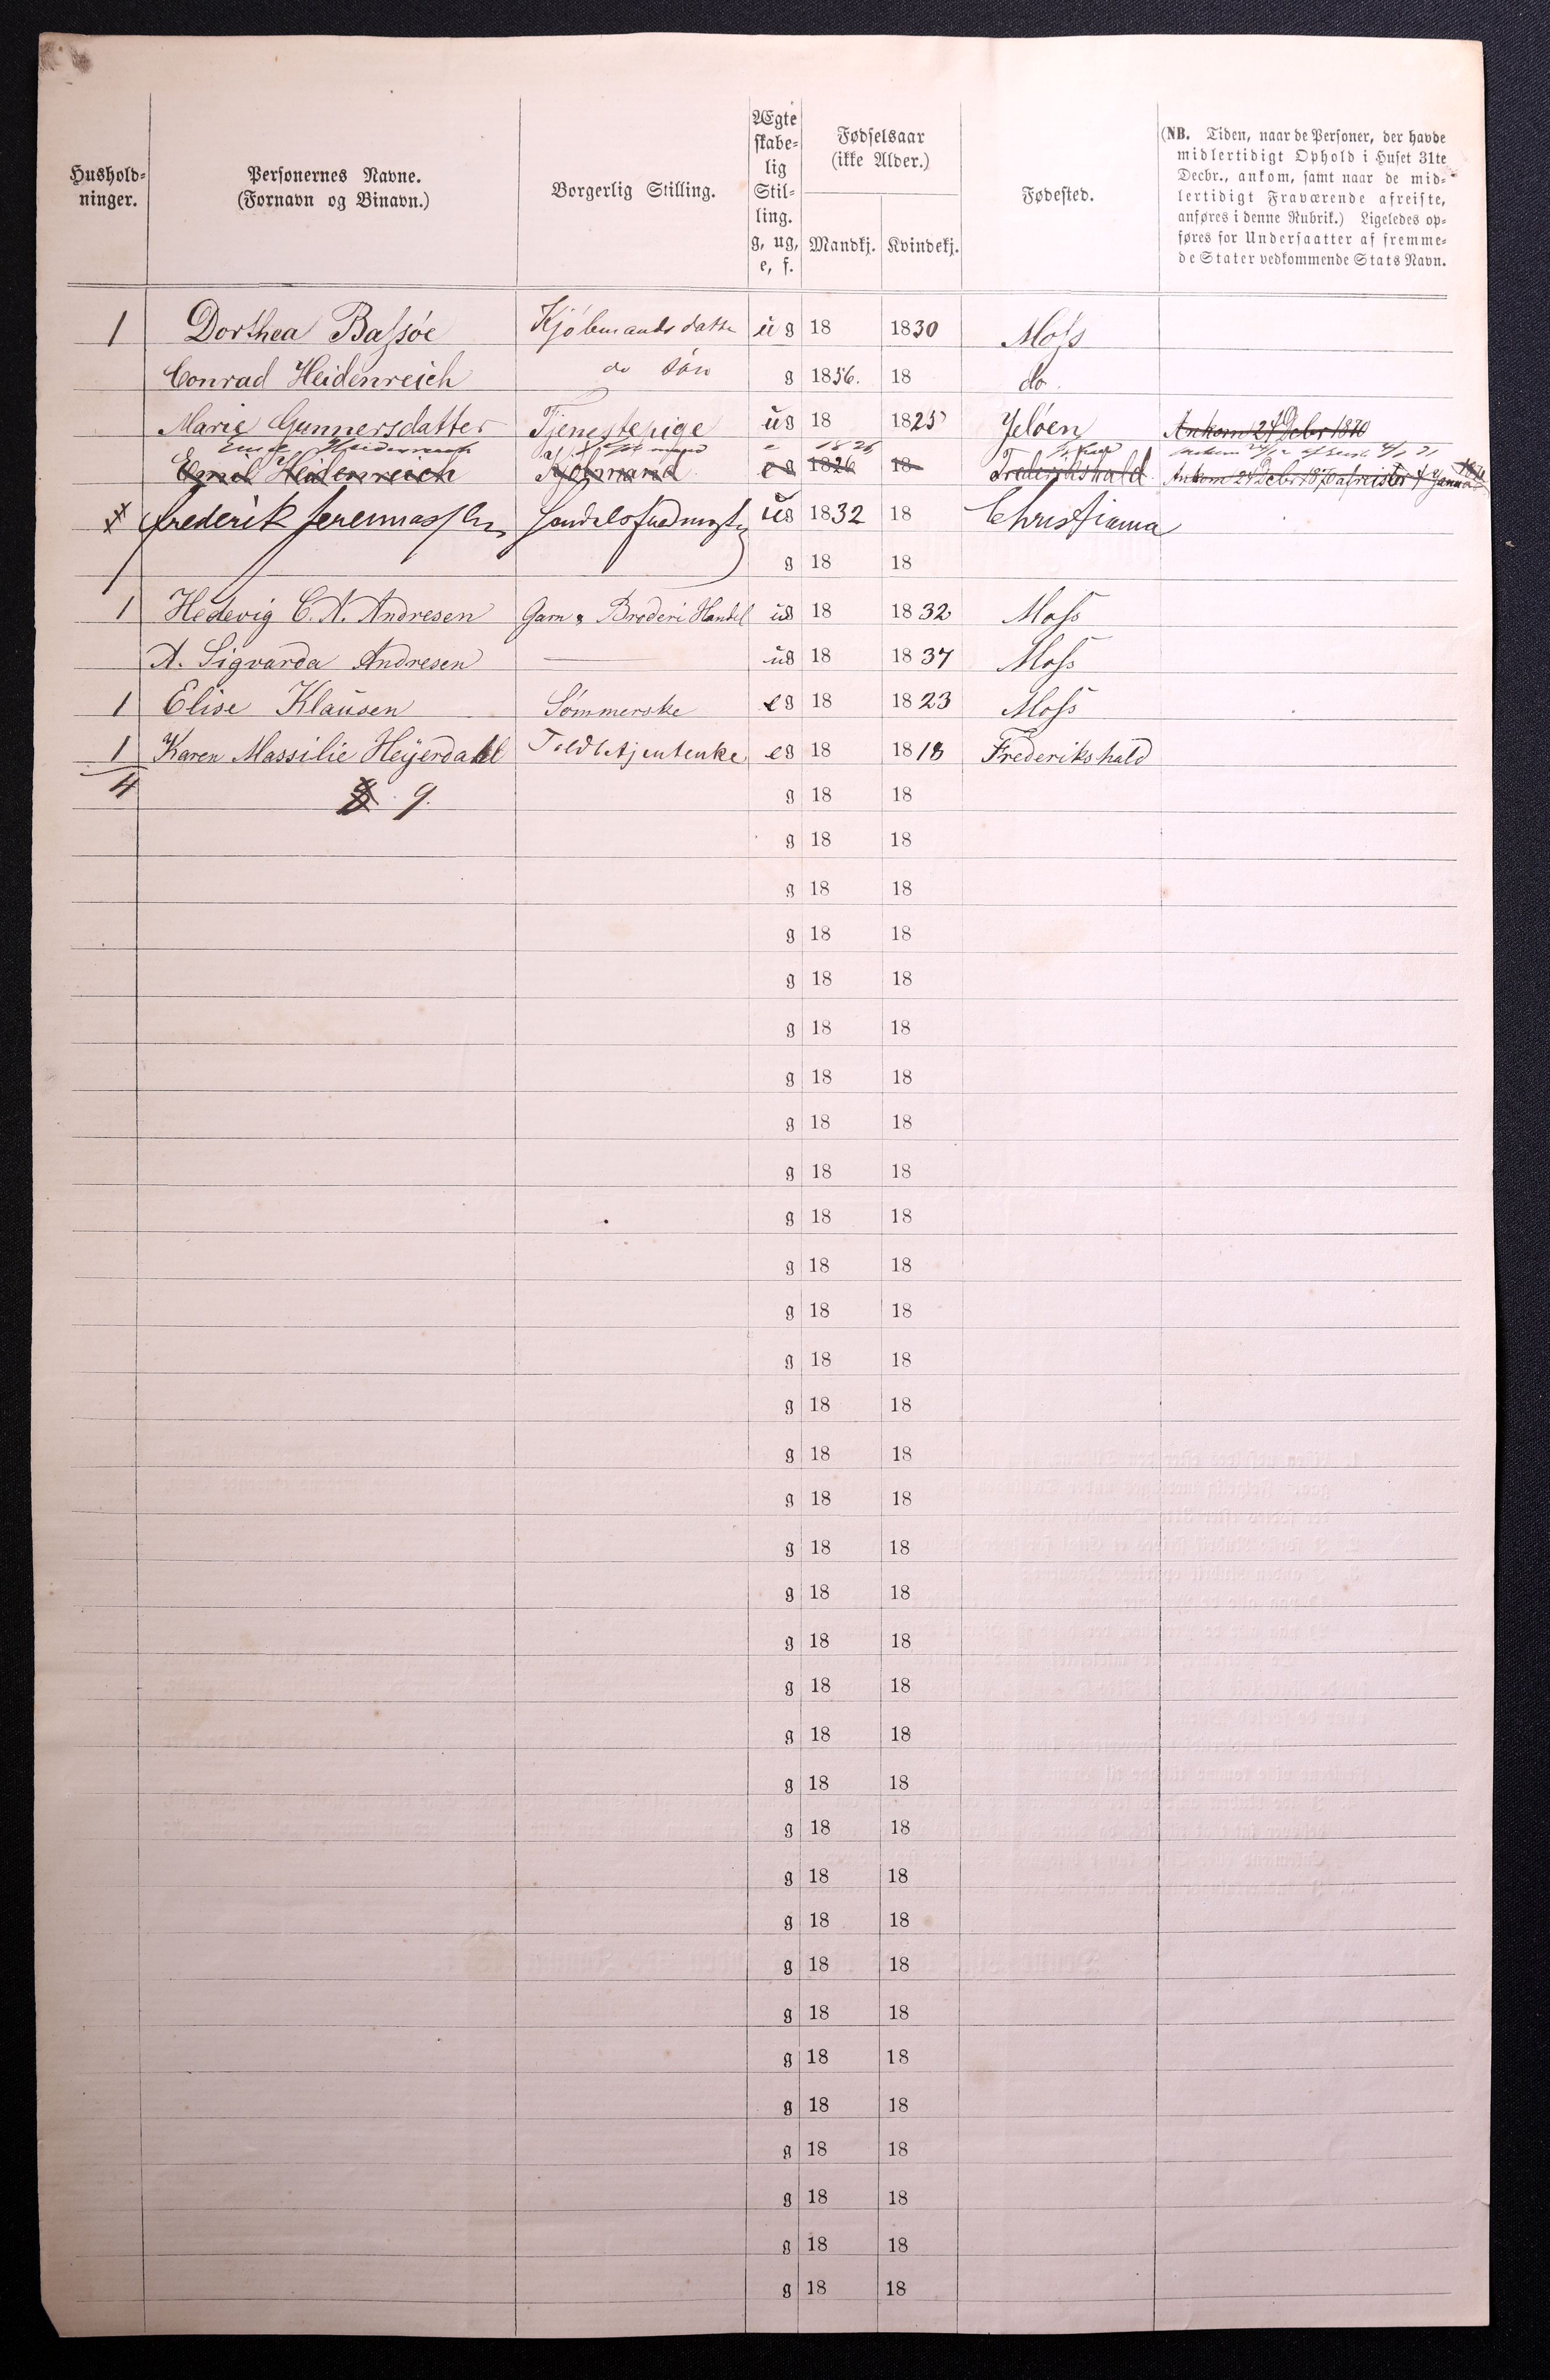 Hushold-
ninger.
Personernes Navne.
(Fornavn og Binavn.)
Borgerlig Stilling.
Ægte
skabe-
lig
Stil-
ling.
g, ug,
e, f.
Fødselsaar
(ikke Alder.)
Mandkj. Kvindekj.
Fødested.
(NB. Tiden, naar de Personer, der havde
midlertidigt Ophold i Huset 31te
Decbr., ankom, samt naar de mid-
lertidigt Fraværende afreiste,
anføres i denne Rubrik.) Ligeledes op-
føres for Undersaatter af fremme-
de Stater vedkommende Stats Navn.
1 Dorthea Bassøe Kjøbmands datter ug 18 1830 Moss
Conrad Heidenreich do Søn g 1856. 18 do.
Marie Gunnersdatter Tjenestepige ug 18 1825 Jeløen Ankom 24 Debr 1870
Emil Heidenreich 1826
Emil Heidenreich eg 1826 18 Frederikshald Ankom 24 Debr 1870 afreister 4 Januar 1871
Frederik ug 1832 18 Christiania
g 18 18
1 Hedevig C. A. Andresen Garn & Broderi Handel ug 18 1832 Moss
A. Sigvarda Andresen — ug 18 1837 Moss
1 Elise Klausen Sømmerske eg 18 1823 Moss
1 Karen Massilie Heyerdahl Toldbetjentenke eg 18 1818 Frederikshald
4 8 9. g 18 18
g 18 18
g 18 18
g 18 18
g 18 18
g 18 18
g 18 18
g 18 18
g 18 18
g 18 18
g 18 18
g 18 18
g 18 18
g 18 18
g 18 18
g 18 18
g 18 18
g 18 18
g 18 18
g 18 18
g 18 18
g 18 18
g 18 18
g 18 18
g 18 18
g 18 18
g 18 18
g 18 18
g 18 18
g 18 18
g 18 18
g 18 18
g 18 18